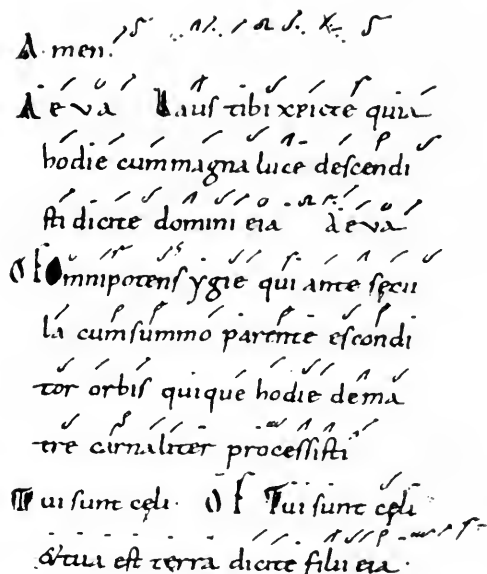 Amen.
Aeva Laus tibi xpicte quia
hodie cummagna luce descendi
sti dicite domini eia aeva
Of Omnipotens ygie qui ante secu
la cumsummo parente es condi
tor orbis quique hodie dema
tre carnaliter processisti
Tui sunt celi. Of Tui sunt celi
& tua est terra dicite filii eia.